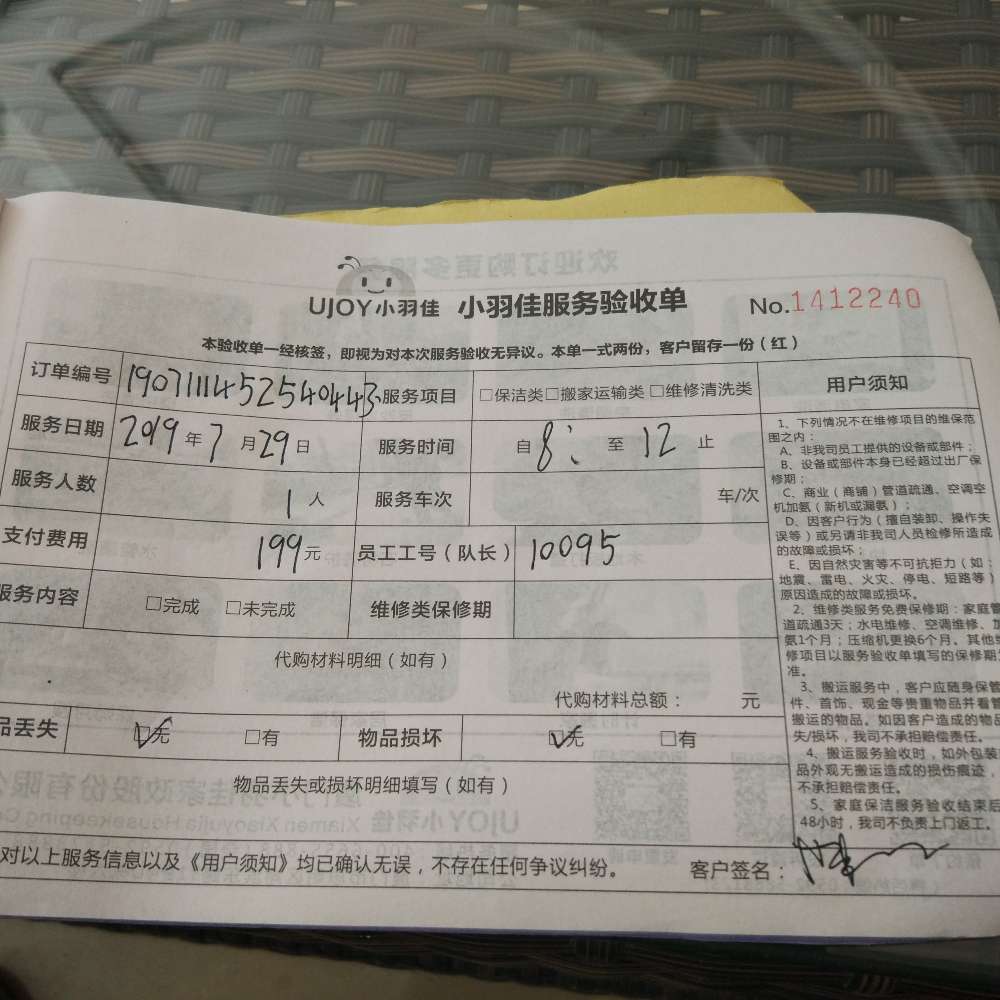 UJOY小羽佳 小羽佳服务验收单 No.1412240
本验收单一经核签，即视为对本次服务验收无异议。本单一式两份，客户留存一份（红）
订单编号 19071114525540443 服务项目 □保洁类□搬家运输类 □维修清洗类
服务日期 2019年7月29日 服务时间 自8：至12止
服务人数 1人 服务车次 车/次
支付费用 199元 员工工号（队长） 10095
服务内容 □完成 □未完成 维修类保修期
代购材料明细（如有）
代购材料总额： 元
品丢失 ☑无 □有 物品损坏 ☑无 □有
物品丢失或损坏明细填写（如有）
对以上服务信息以及《用户须知》均已确认无误，不存在任何争议纠纷。 客户签名：
用户须知
1、下列情况不在维修项目的维保范
围之内：
A、非我司员工提供的设备或部件；
B、设备或部件本身已经超过出厂保
修期；
C、商业（商铺）管道疏通、空调空
机加氨（新机或漏氨）；
D、因客户行为（擅自装卸、操作失
误等）或另请非我司人员检修所造成
的故障或损坏；
E、因自然灾害等不可抗拒力（如：
地震、雷电、火灾、停电、短路等）
原因造成的故障或损坏。
2、维修类服务免费保修期：家庭管
道疏通3天；水电维修、空调维修、加
氨1个月；压缩机更换6个月。其他维
修项目以服务验收单填写的保修期为
准。
3、搬运服务中，客户应随身保管
件、首饰、现金等贵重物品并看管
搬运的物品。如因客户造成的物品
失/损坏，我司不承担赔偿责任。
4、搬运服务验收时，如外包装
品外观无搬运造成的损伤痕迹，
不承担赔偿责任。
5、家庭保洁服务验收结束后
48小时，我司不负责上门返工。